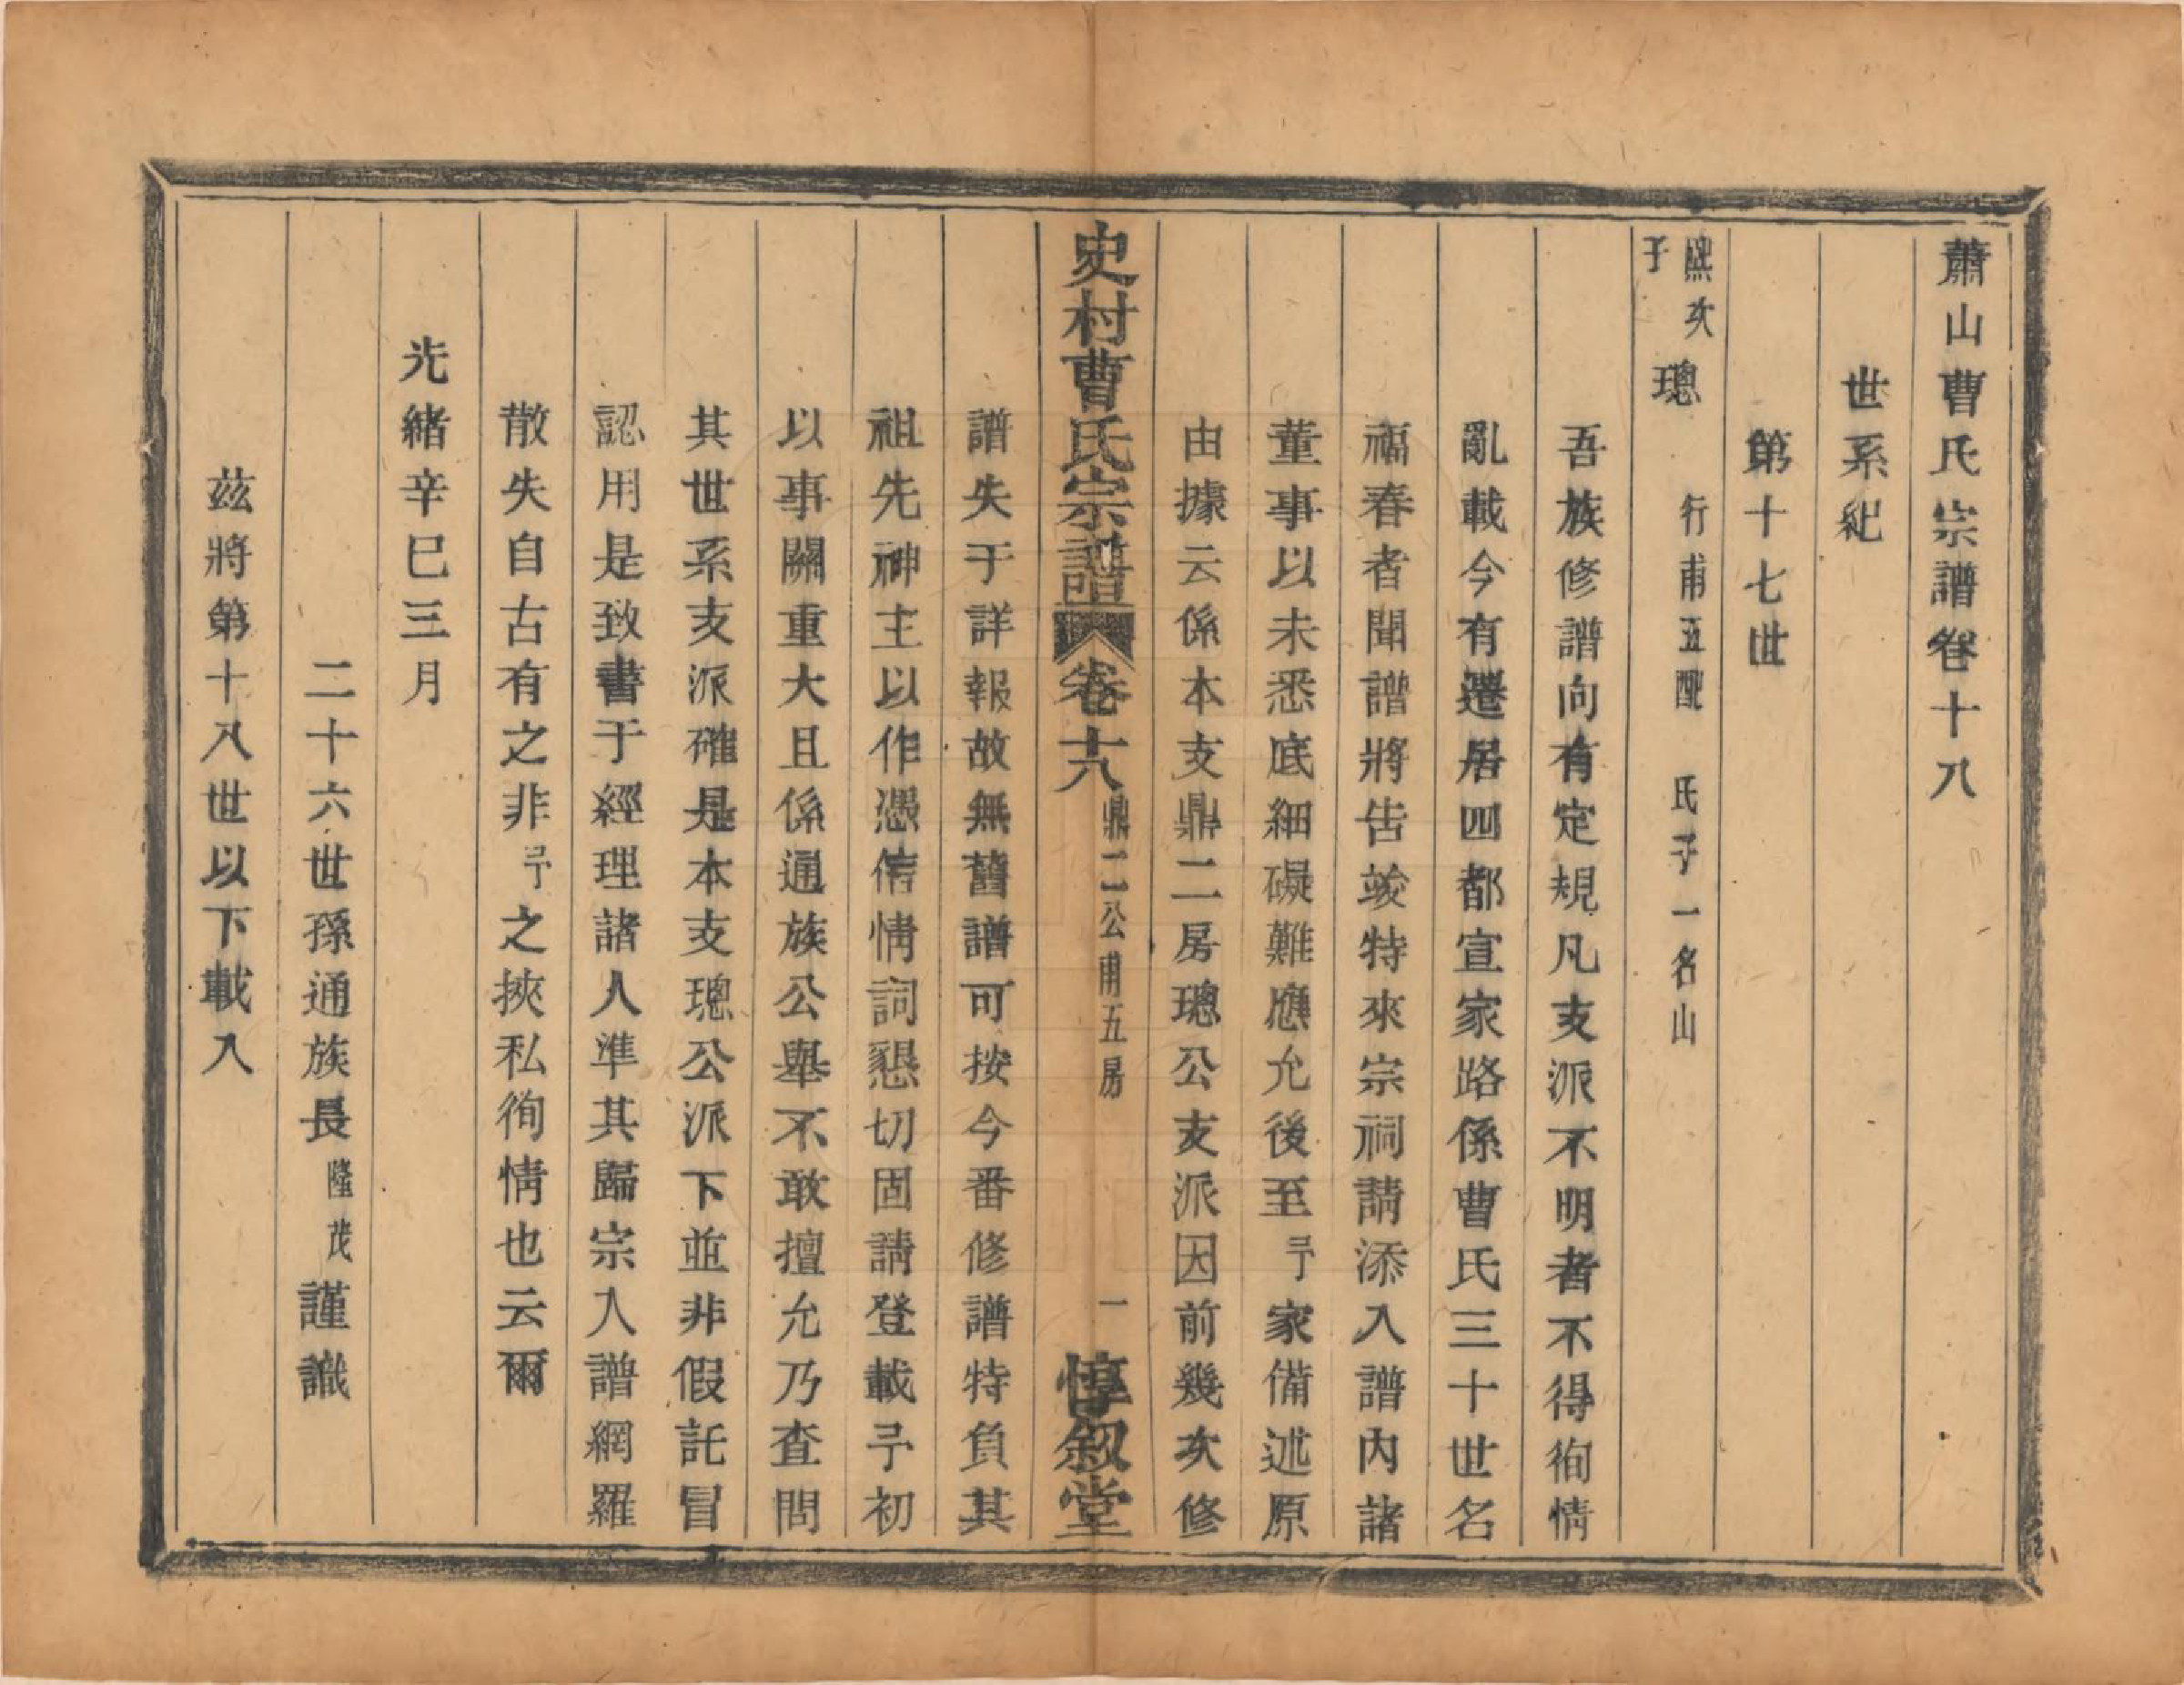 蕭山曹氏宗譜卷十八
世系紀
第十七世
熈次子 璁 行甫五配 氏子一名山
吾族修譜向有定規凡支派不明者不得徇情
亂載今有遷居四都宣家路係曹氏三十世名
福春者聞譜將告竣特來宗祠請添入譜內諸
董事以未悉底細礙難應允後至予家備述原
由據云係本支鼎二房璁公支派因前幾次修
史村曹氏宗譜 卷十八 鼎二公甫五房 一 惇叙堂
譜失于詳報故無舊譜可按今番修譜特負其
祖先神主以作憑信情詞懇切固請登載予初
以事關重大且係通族公舉不敢擅允乃查問
其世系支派確是本支璁公派下並非假託冒
認用是致書于經理諸人準其歸宗入譜網羅
散失自古有之非予之挾私徇情也云爾
光緒辛巳三月
二十六世孫通族長隆茂謹識
茲將第十八世以下載入